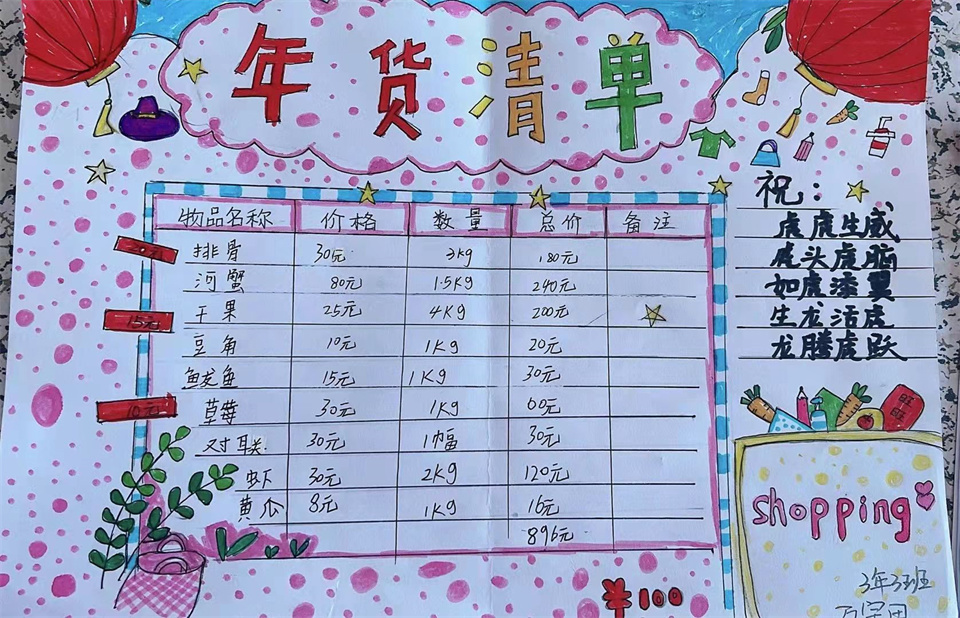 年货清单
祝：
虎虎生威
虎头虎脑
如虎添翼
生龙活虎
龙腾虎跃
物品名称 价格 数量 总价 备注
排骨 30元 3kg 180元
河蟹 80元 1.5Kg 240元
干果 25元 4Kg 200元
豆角 10元 1Kg 20元
鱿龙鱼 15元 1Kg 30元
草莓 30元 1Kg 60元
对联 30元 1幅 30元
虾 30元 2Kg 120元
黄瓜 8元 1Kg 16元
896元
15元
10元
旺旺
shopping
¥100
3年3班